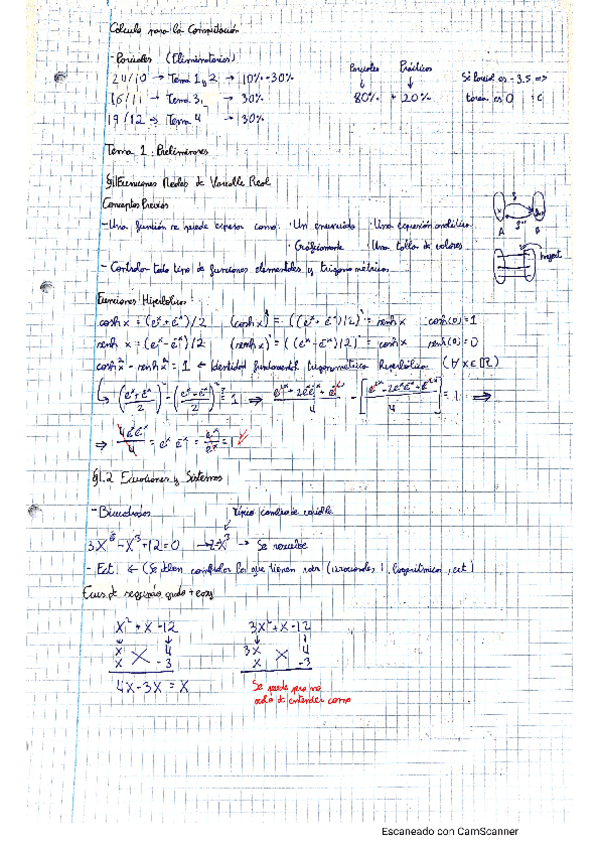 Calculo para la Computación
- Parciales (Eliminatorios)
24/10 → Tema 1 y 2 → 10% - 30%
16/11 → Tema 3 → 30%
19/12 → Tema 4 → 30%
Parciales Prácticas
↓ ↓
80% + 20%
Si parcial es -3.5 =>
tarea es 0 :c
Tema 1: Preliminares
§1.1 Funciones Reales de Variable Real
Conceptos Previos
- Una función se puede expresar como: · Un enunciado · Una expresión analítica
· Gráficamente · Una tabla de valores
A B
- Controlar todo tipo de funciones elementales y trigonométricas
Funciones Hiperbólicas
cosh x = (e^x + e^-x)/2 (cosh x)' = ((e^x + e^-x)/2)' = senh x cosh(0) = 1
senh x = (e^x - e^-x)/2 (senh x)' = ((e^x - e^-x)/2)' = cosh x senh(0) = 0
cosh²x - senh²x = 1 ← Identidad fundamental trigonometrica hiperbólica (∀ x ∈ ℝ)
↳ ((e^x + e^-x)/2)² - ((e^x - e^-x)/2)² = 1 ⇒ (e^2x + 2e^x e^-x + e^-2x)/4 - [(e^2x - 2e^x e^-x + e^-2x)/4] = 1 ⇒
⇒ 4e^x e^-x/4 = e^x e^-x = e^x/e^x = 1
§1.2 Ecuaciones y Sistemas
- Bicuadradas Típico cambio de variable
3x^6 - x^3 + 12 = 0 → z = x^3 → Se resuelve
- Ect ← (Se deben comprobar las que tienen raíz (irracionales), logarítmicas, ect)
Ecus de segundo grado + easy
x² + x - 12 3x² + x - 12
x 4 3x 4
x -3 x -3
4x - 3x = x
Se puede pero no
acabo de entender como
Escaneado con CamScanner